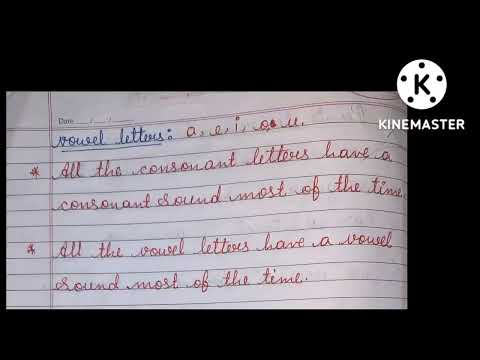 KINEMASTER
Date ....../....../......
vowel letters: a, e, i, o, u.
* All the consonant letters have a
consonant sound most of the time
* All the vowel letters have a vowel
sound most of the time.